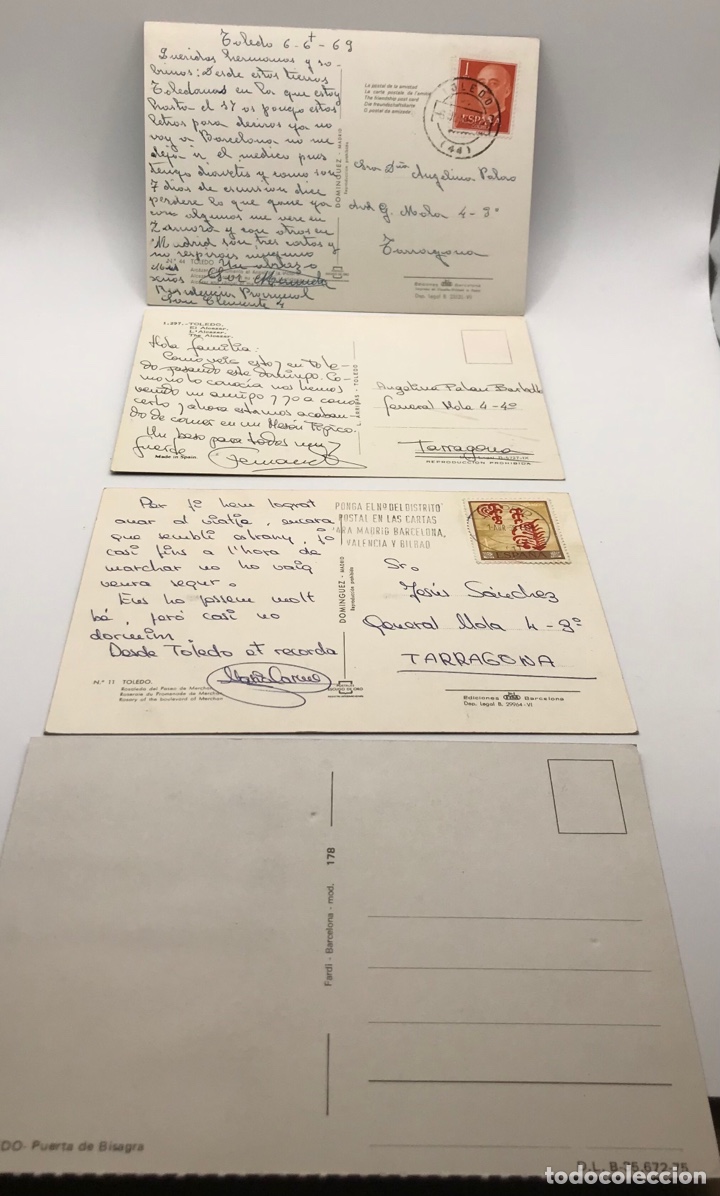 Toledo 6-6t-69
Queridos hermanos y so-
brinos: Desde estas tierras
Toledanas en las que estoy
hasta el 17 os pongo estas
letras para deciros ya no
voy a Barcelona no me
deja ir el medico pues
tengo diavetis y como son
7 dias de escursion dice
perdere lo que gane ya
con algunos me vere en
Zamora y con otros en
Madrid son tres cartas y
no respirais ninguno
Un abrazo
Residencia Provincial
San Clemente 4
Nº 44 TOLEDO
DOMINGUEZ - MADRID
Reproducción prohibida
La postal de la amistad
La carte postale de l'amitié
The friendship post card
Die freundschaftskarte
O postal da amizade
1
TOLEDO
(44)
Sra Dña Angelina Palao
Avd G. Mola 4-3º
Tarragona
Ediciones Barcelona
Dep. Legal B.
1.297.-TOLEDO.
El Alcázar.
L'Alcazar.
The Alcazar.
Hola familia:
Como veis estoy en Tole-
do pasando este domingo. Co-
mo no lo conocía nos hemos
venido un amigo y yo a cono-
cerlo y ahora estamos acaban-
do de comer en un Mesón Típico.
Un beso para todos muy
fuerte
Fernando
Made in Spain.
ARRIBAS - TOLEDO
Angelina Palau
General Mola 4-4º
Tarragona
REPRODUCCION PROHIBIDA
Por fi hem lograt
anar al viatje, encara
que sembli estrany, jo
casi fins a l'hora de
marchar no ho vaig
veura segur.
Ens ho passem molt
bé, però casi no
dormim
Desde Toledo et recorda
Maria Carme
N.º 11 TOLEDO.
Rosaleda del Paseo de Merchan
Roseraie du Promenade de Merchan
Rosary of the boulevard of Merchan
DOMINGUEZ - MADRID
Reproducción prohibida
ESCUDO DE ORO
PONGA EL Nº DEL DISTRITO
POSTAL EN LAS CARTAS
PARA MADRID BARCELONA,
VALENCIA Y BILBAO
ESPAÑA
Sr.
Jesús Sánchez
General Mola 4-3º
TARRAGONA
Ediciones FISA Barcelona
Dep. Legal B. 29964-VI
Fardi - Barcelona - mod. 178
DO- Puerta de Bisagra
D.L. B-35.672-75
todocoleccion